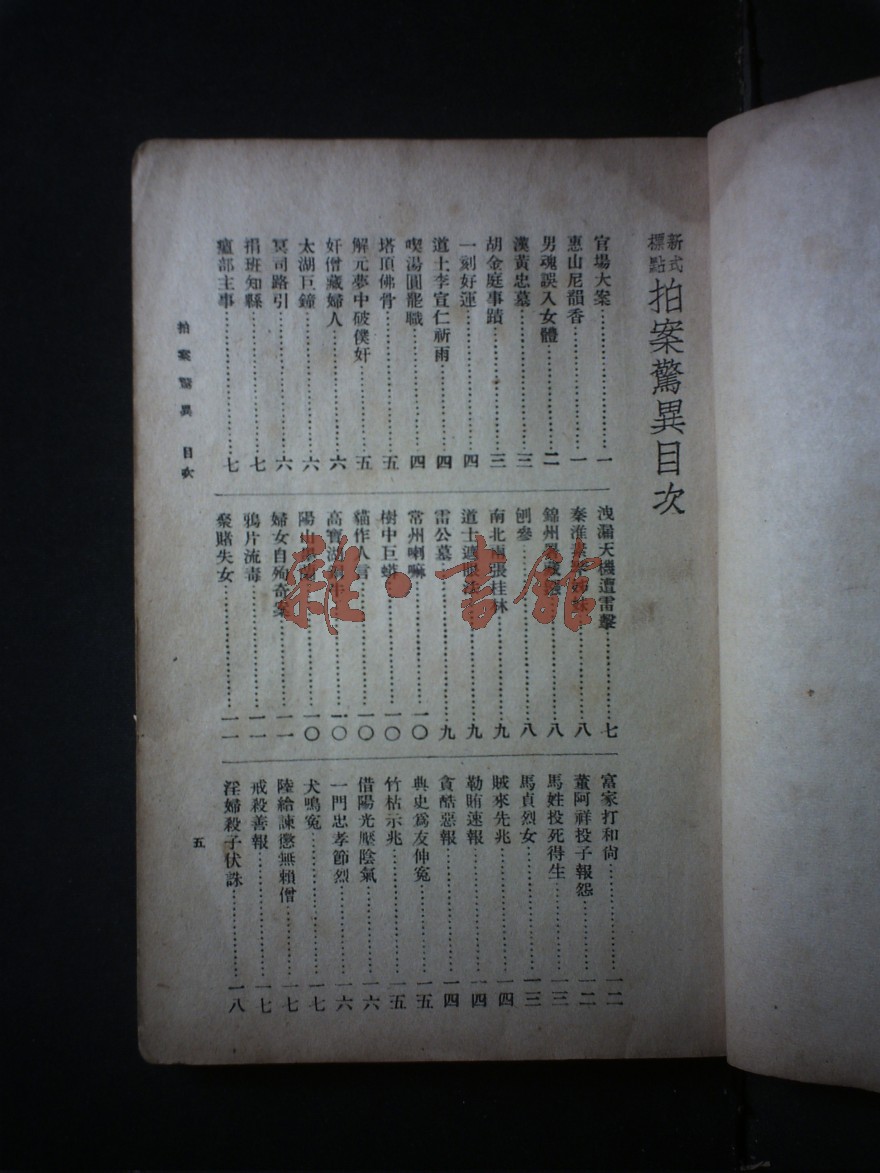 新式標點 拍案驚異目次
官場大案 一
惠山尼韻香 一
男魂誤入女體 二
漢黃忠墓 三
胡金庭事蹟 三
一刻好運 四
道士李宣仁祈雨 四
喫湯圓罷職 四
塔頂佛骨 五
解元夢中破僕奸 五
奸僧藏婦人 六
太湖巨鐘 六
冥司路引 六
捐班知縣 七
瘟部主事 七
洩漏天機遭雷擊 七
秦淮 姊妹 八
錦州 八
刨參 八
南北兩張桂林 九
道士遮眼法 九
雷公墓 九
常州喇嘛 一〇
樹中巨蟒 一〇
貓作人言 一〇
高寶湖 一〇
陽山 一〇
婦女自殉奇案 一一
鴉片流毒 一一
聚賭失女 一一
富家打和尙 一二
董阿祥投子報怨 一二
馬姓投死得生 一三
馬貞烈女 一三
賊來先兆 一四
勒賄速報 一四
貪酷惡報 一四
典史爲友伸冤 一五
竹枯示兆 一五
借陽光壓陰氣 一六
一門忠孝節烈 一六
犬鳴冤 一七
陸給諫懲無賴僧 一七
戒殺善報 一七
淫婦殺子伏誅 一八
拍案驚異 目次
五
雜·書館